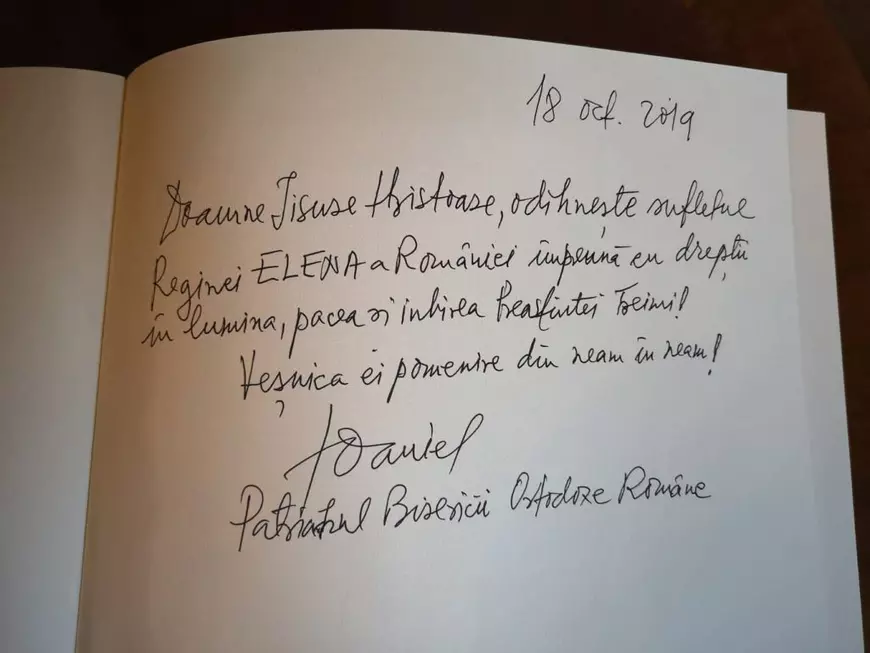 18 oct. 2019
Doamne Iisuse Hristoase, odihnește sufletul
Reginei ELENA a României împreună cu drepții
în lumina, pacea și iubirea Preasfintei Treimi!
Veșnica ei pomenire din neam în neam!
† Daniel
Patriarhul Bisericii Ortodoxe Române